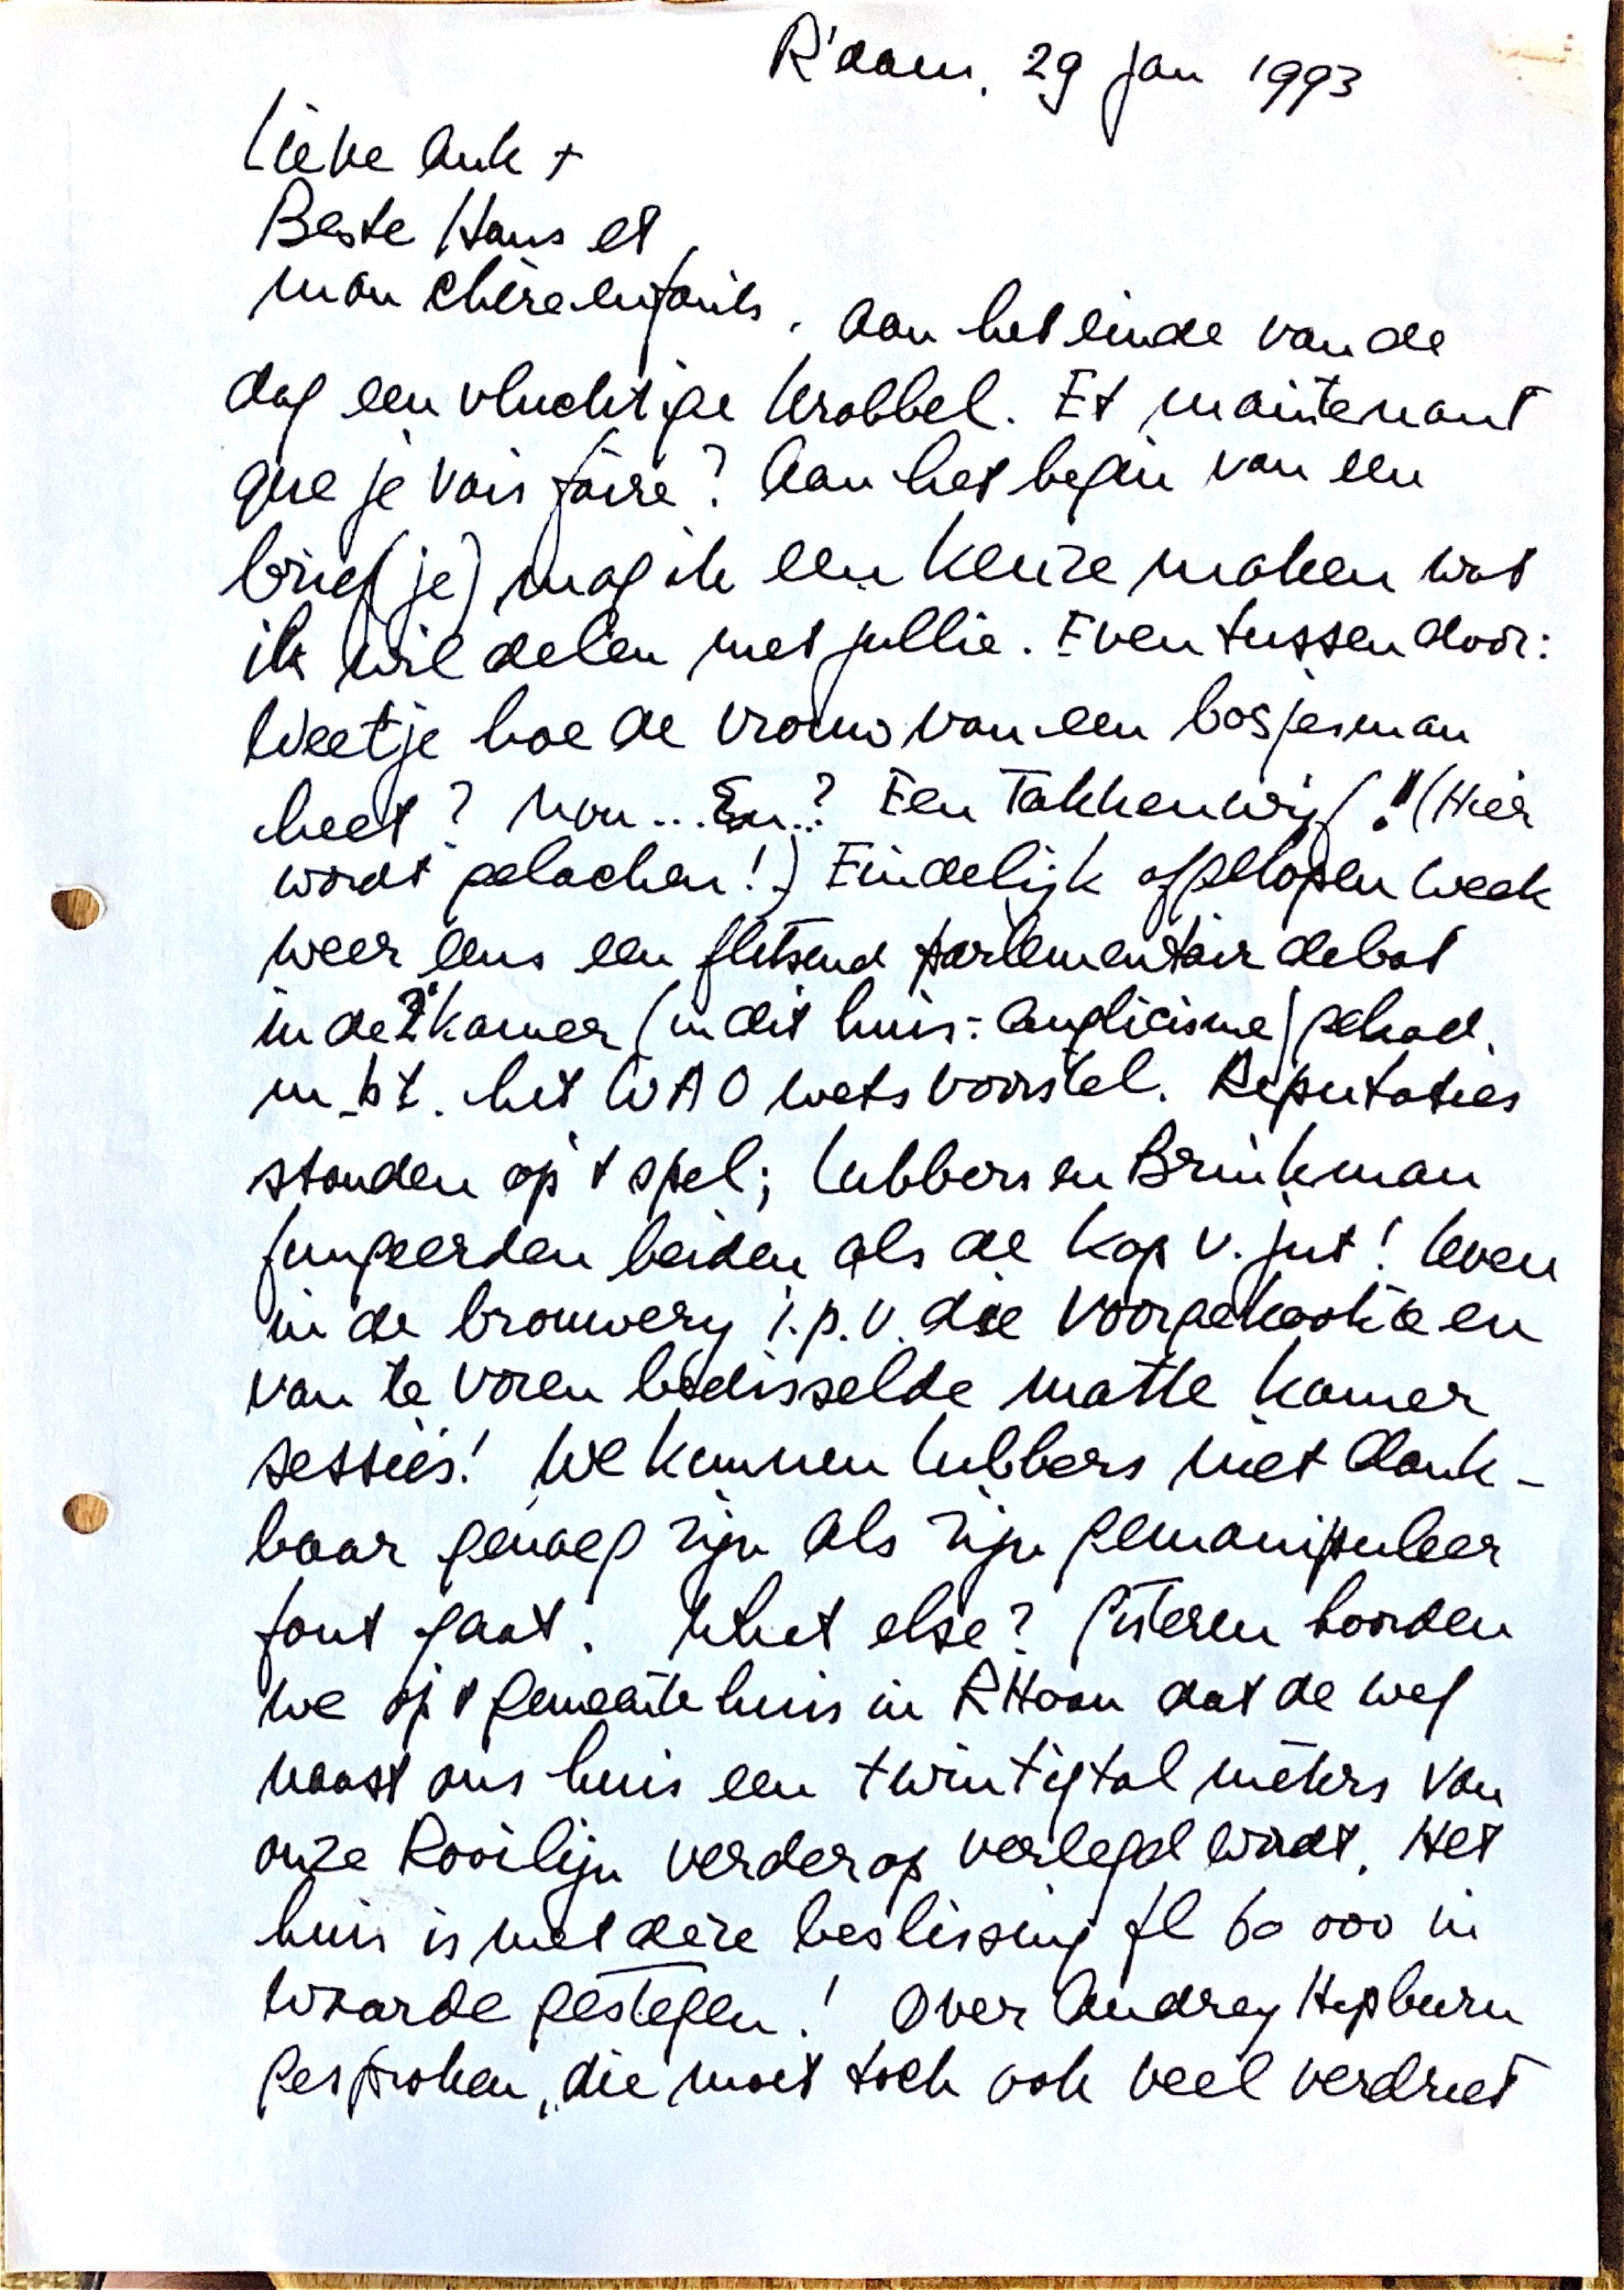 R'dam, 29 jan 1993
Lieve Ank +
Beste Hans et
mon chère enfants, Aan het einde van de
dag een vluchtige krabbel. Et maintenant
que je vais faire? Aan het begin van een
brief(je) mag ik een keuze maken wat
ik wil delen met jullie. Even tussendoor:
Weet je hoe de vrouw van een bosjesman
heet? Nou... En..? Een Takkenwijf!" (Hier
wordt gelachen!) Eindelijk afgelopen week
weer eens een flitsend parlementair debat
in de 2e kamer (in dit huis: anglicisme) gehad.
m.b.t. het WAO wetsvoorstel. Reputaties
stonden op 't spel; Lubbers en Brinkman
fungeerden beiden als de kop v. jut! Leven
in de brouwery i.p.v. die voorgekookte en
van te voren bedisselde matte kamer
sessies! We kunnen Lubbers niet dank-
baar genoeg zijn als zijn gemanipuleer
fout gaat. What else? Gisteren hoorden
we op 't gemeentehuis in RHoon dat de weg
naast ons huis een twintigtal meters van
onze Rooilijn verderop verlegd wordt. Het
huis is met deze beslissing fl 60 000 in
waarde gestegen! Over Audrey Hepburn
gesproken, die moet toch ook veel verdriet